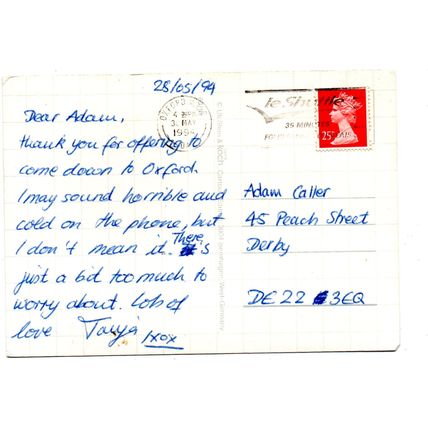 28/05/94
Dear Adam,
thank you for offering to
come down to Oxford.
I may sound horrible and
cold on the phone, but
I don't mean it. There
's
just a bit too much to
worry about. Lots of
love Tanja
xox
OXFORD
3. MAY
1994
le Shuttle
35 MINUTES
25
Adam Caller
45 Peach Street
Derby
DE22 3EQ
West Germany